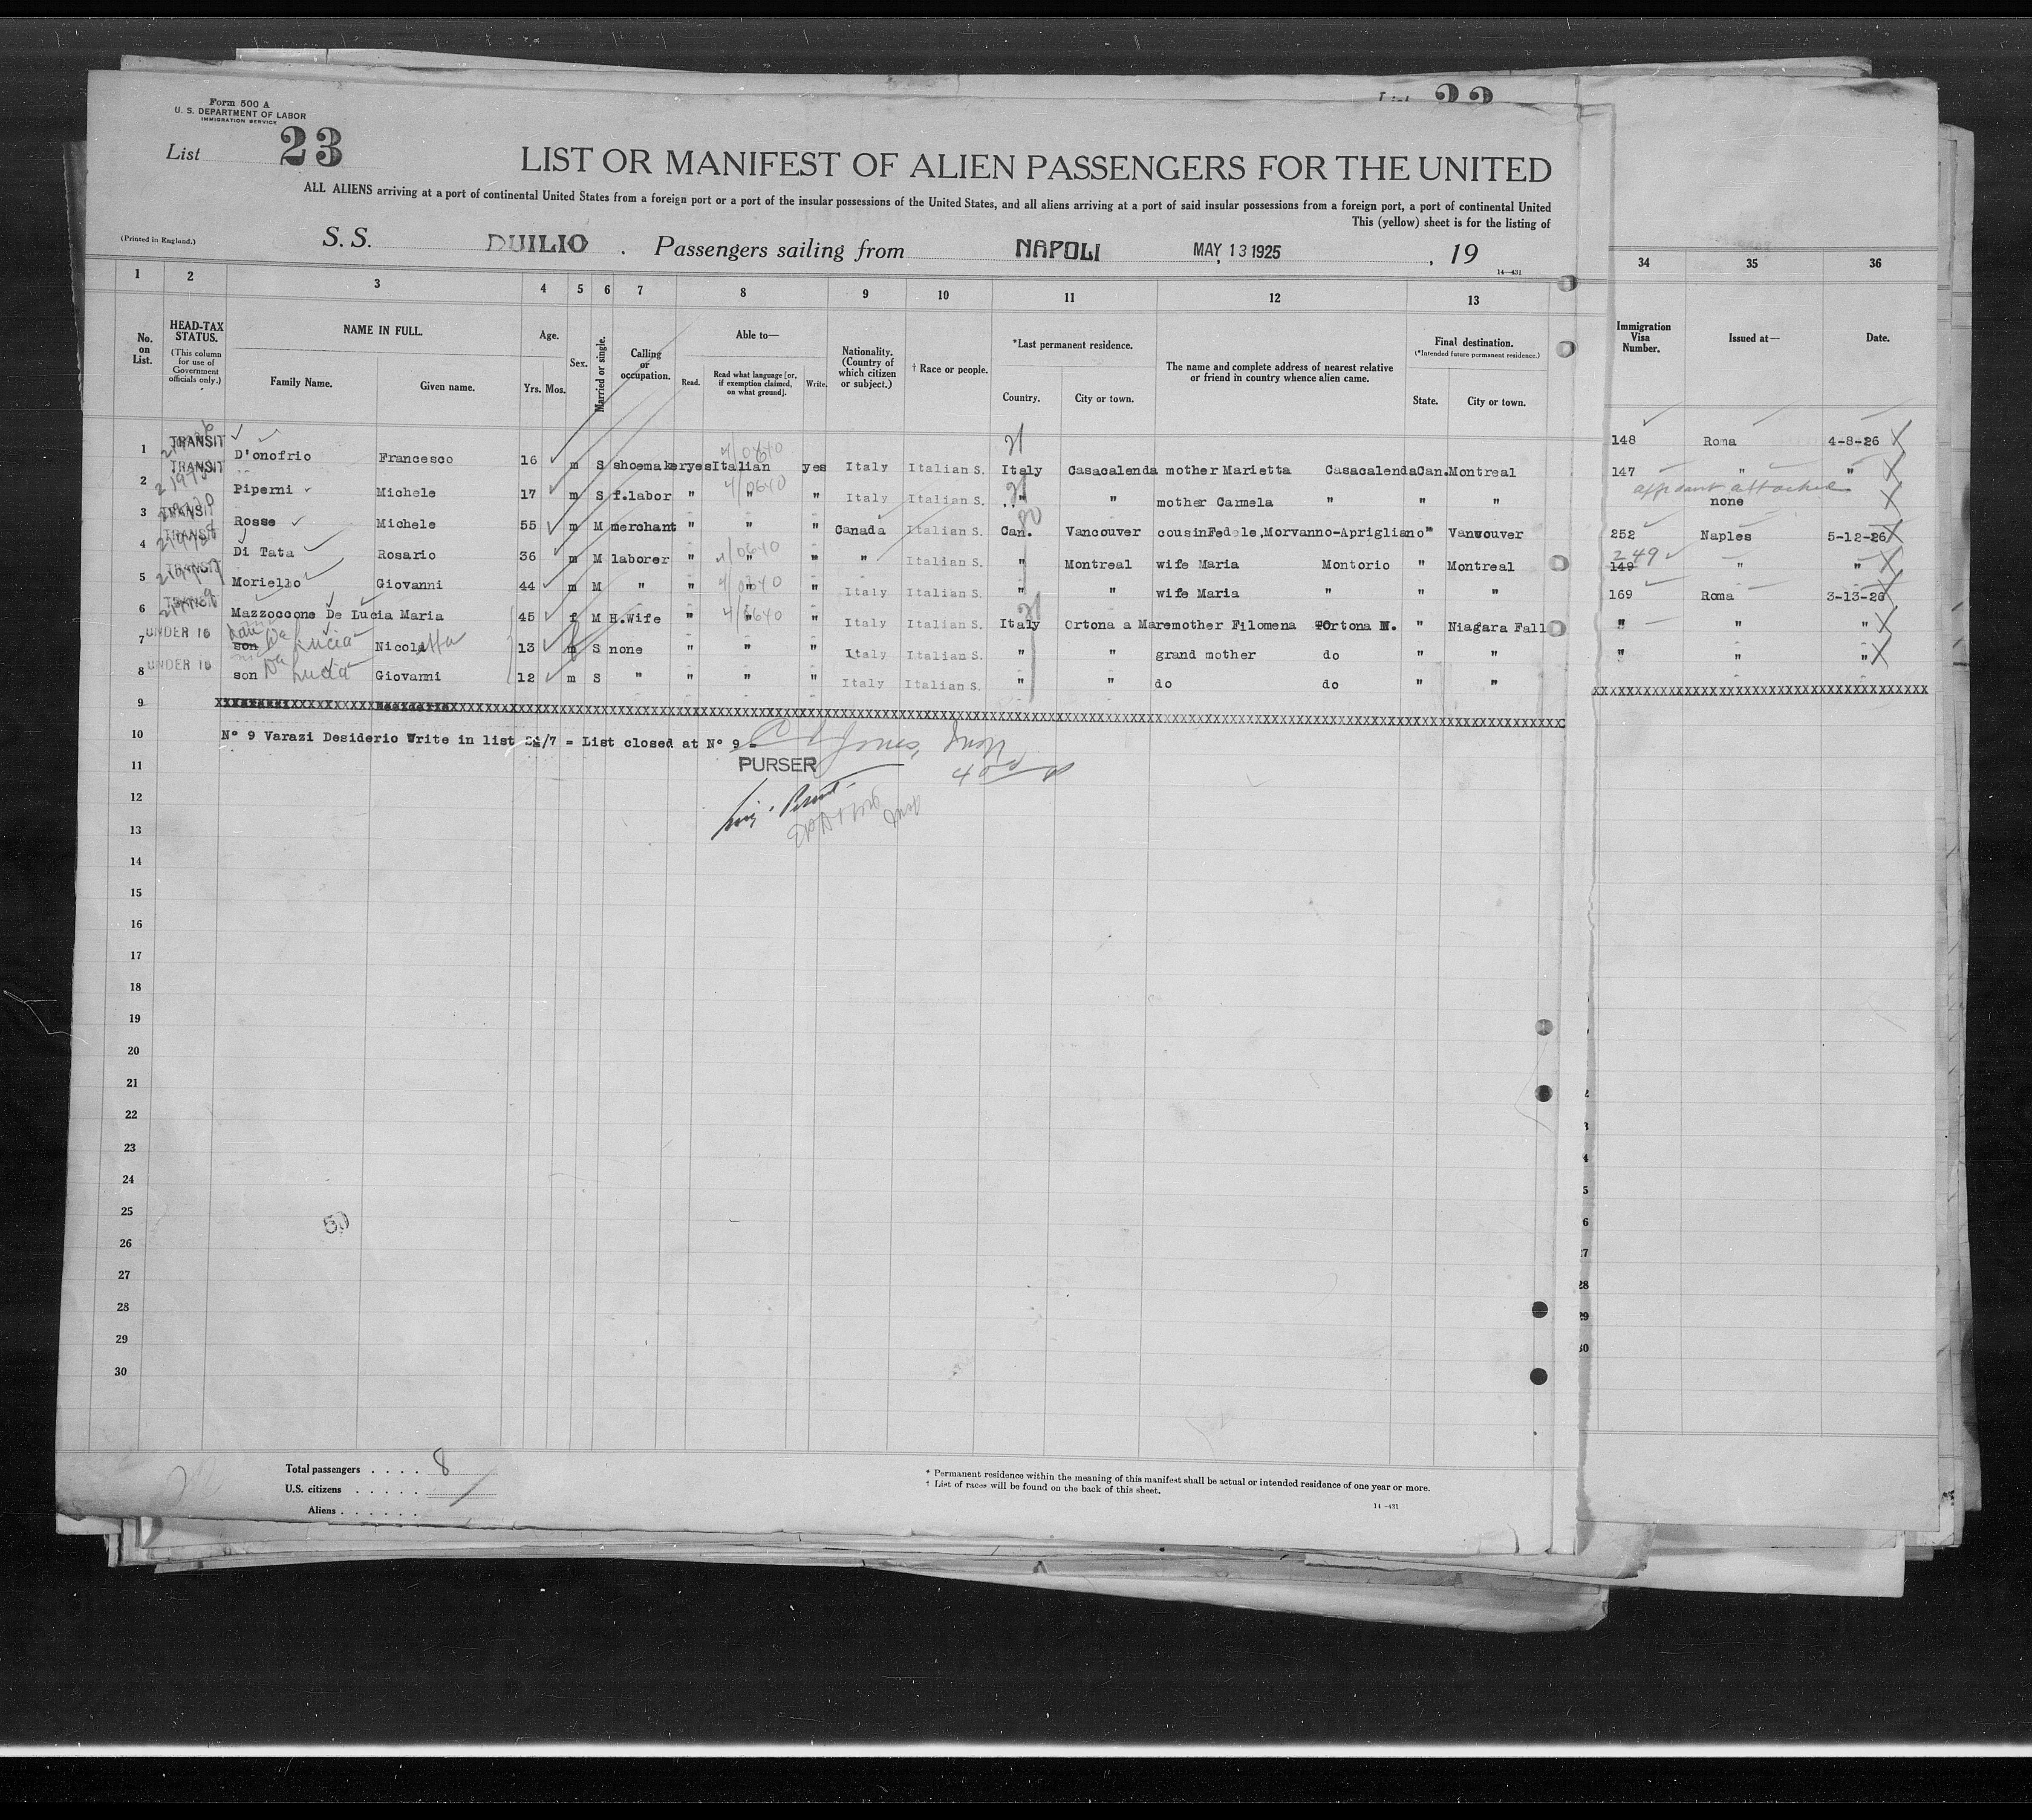 Form 500 A
U. S. DEPARTMENT OF LABOR
IMMIGRATION SERVICE
List 23
LIST OR MANIFEST OF ALIEN PASSENGERS FOR THE UNITED
ALL ALIENS arriving at a port of continental United States from a foreign port or a port of the insular possessions of the United States, and all aliens arriving at a port of said insular possessions from a foreign port, a port of continental United
This (yellow) sheet is for the listing of
(Printed in England.)
S. S. DUILIO . Passengers sailing from NAPOLI MAY 13 1925 , 19
14—431
1 2 3 4 5 6 7 8 9 10 11 12 13 34 35 36
No. on List.
HEAD-TAX STATUS.
(This column for use of Government officials only.)
NAME IN FULL.
Family Name. Given name.
Age.
Yrs. Mos.
Sex.
Married or single.
Calling or occupation.
Able to—
Read. Read what language [or, if exemption claimed, on what ground]. Write.
Nationality. (Country of which citizen or subject.)
† Race or people.
*Last permanent residence.
Country. City or town.
The name and complete address of nearest relative or friend in country whence alien came.
Final destination.
(*Intended future permanent residence.)
State. City or town.
Immigration Visa Number.
Issued at—
Date.
1 TRANSIT D'onofrio Francesco 16 m S shoemaker yes Italian yes Italy Italian S. Italy Casacalenda mother Marietta Casacalenda Can. Montreal 148 Roma 4-8-26
2 TRANSIT Piperni Michele 17 m S f.labor " " " Italy Italian S. " " mother Carmela " " " 147 " "
affidavit attached
3 TRANSIT Rosse Michele 55 m M merchant " " " Canada Italian S. Can. Vancouver cousin Fedele, Morvanno-Aprigliano " Vancouver none
4 TRANSIT Di Tata Rosario 36 m M laborer " " " " Italian S. " Montreal wife Maria Montorio " Montreal 252 Naples 5-12-26
5 TRANSIT Moriello Giovanni 44 m M " " " " Italy Italian S. " " wife Maria " " " 149 249 " "
6 TRANSIT Mazzoccone De Lucia Maria 45 f M H.Wife " " " Italy Italian S. Italy Ortona a Mare mother Filomena Ortona M. " Niagara Fall 169 Roma 3-13-26
7 UNDER 16 son De Lucia Nicoletta 13 m S none " " " Italy Italian S. " " grand mother do " " " " "
8 UNDER 16 son De Lucia Giovanni 12 m S " " " " Italy Italian S. " " do do " " " " "
9
10 N° 9 Varazi Desiderio Write in list 24/7 = List closed at N° 9 =
PURSER
11
12
13
14
15
16
17
18
19
20
21
22
23
24
25
26
27
28
29
30
50
Total passengers . . . . 8
U.S. citizens . . . . .
Aliens . . . . . .
* Permanent residence within the meaning of this manifest shall be actual or intended residence of one year or more.
† List of races will be found on the back of this sheet.
14—431